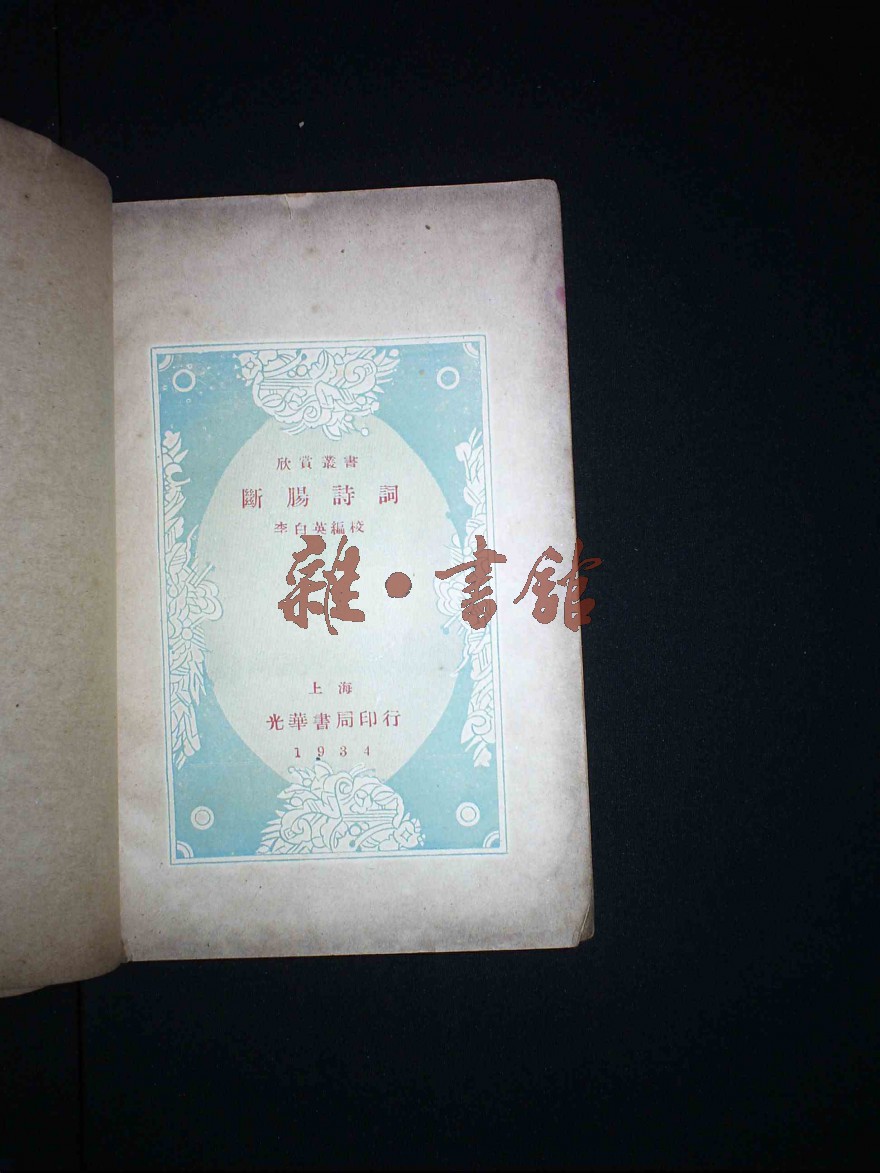 欣賞叢書
斷腸詩詞
李白英編校
雜·書館
上海
光華書局印行
1934